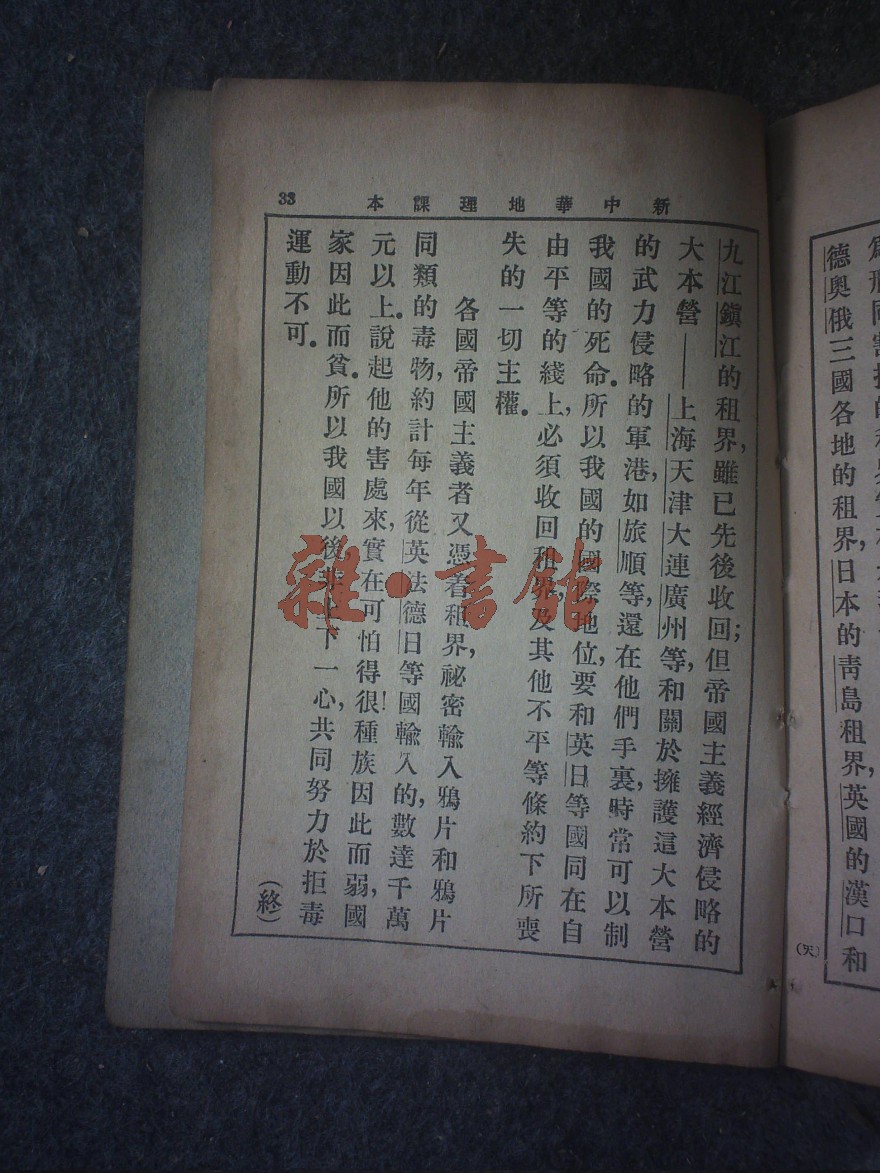 德奧俄三國各地的租界,日本的靑島租界,英國的漢口和
(天)
新中華地理課本
33
九江鎭江的租界,雖已先後收回;但帝國主義經濟侵略的
大本營——上海天津大連廣州等,和關於擁護這大本營
的武力侵略的軍港,如旅順等,還在他們手裏,時常可以制
我國的死命。所以我國的國際地位,要和英日等國同在自
由平等的綫上,必須收回租界及其他不平等條約下所喪
失的一切主權。
各國帝國主義者又憑着租界,祕密輸入鴉片和鴉片
同類的毒物,約計每年從英法德日等國輸入的,數達千萬
元以上。說起他的害處來,實在可怕得很!種族因此而弱,國
家因此而貧。所以我國以後,非上下一心,共同努力於拒毒
運動不可。
(終)
雜·書館